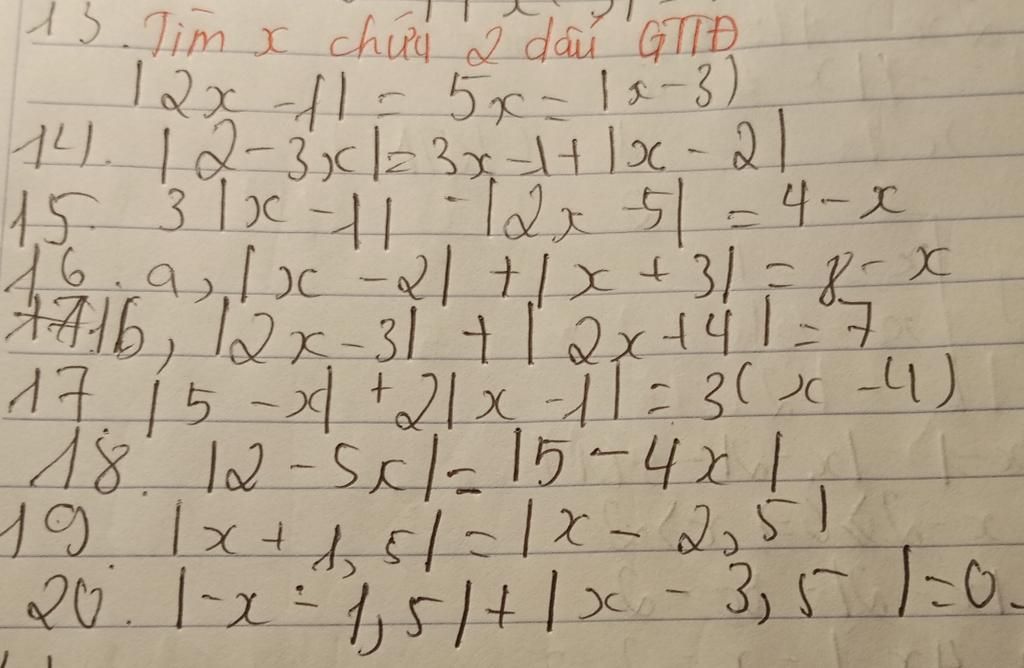 13. Tìm x chứa 2 dấu GTTĐ
|2x - 1| = 5x = |x - 3)
14. |2 - 3x| = 3x - 1 + |x - 2|
15. 3|x - 1| - |2x - 5| = 4 - x
16. a, |x - 2| + |x + 3| = 8 - x
16b, |2x - 3| + |2x + 4| = 7
17 |5 - x| + 2|x - 1| = 3(x - 4)
18. |2 - 5x| = |5 - 4x|
19 |x + 1,5| = |x - 2,5|
20. |-x - 1,5| + |x - 3,5| = 0.